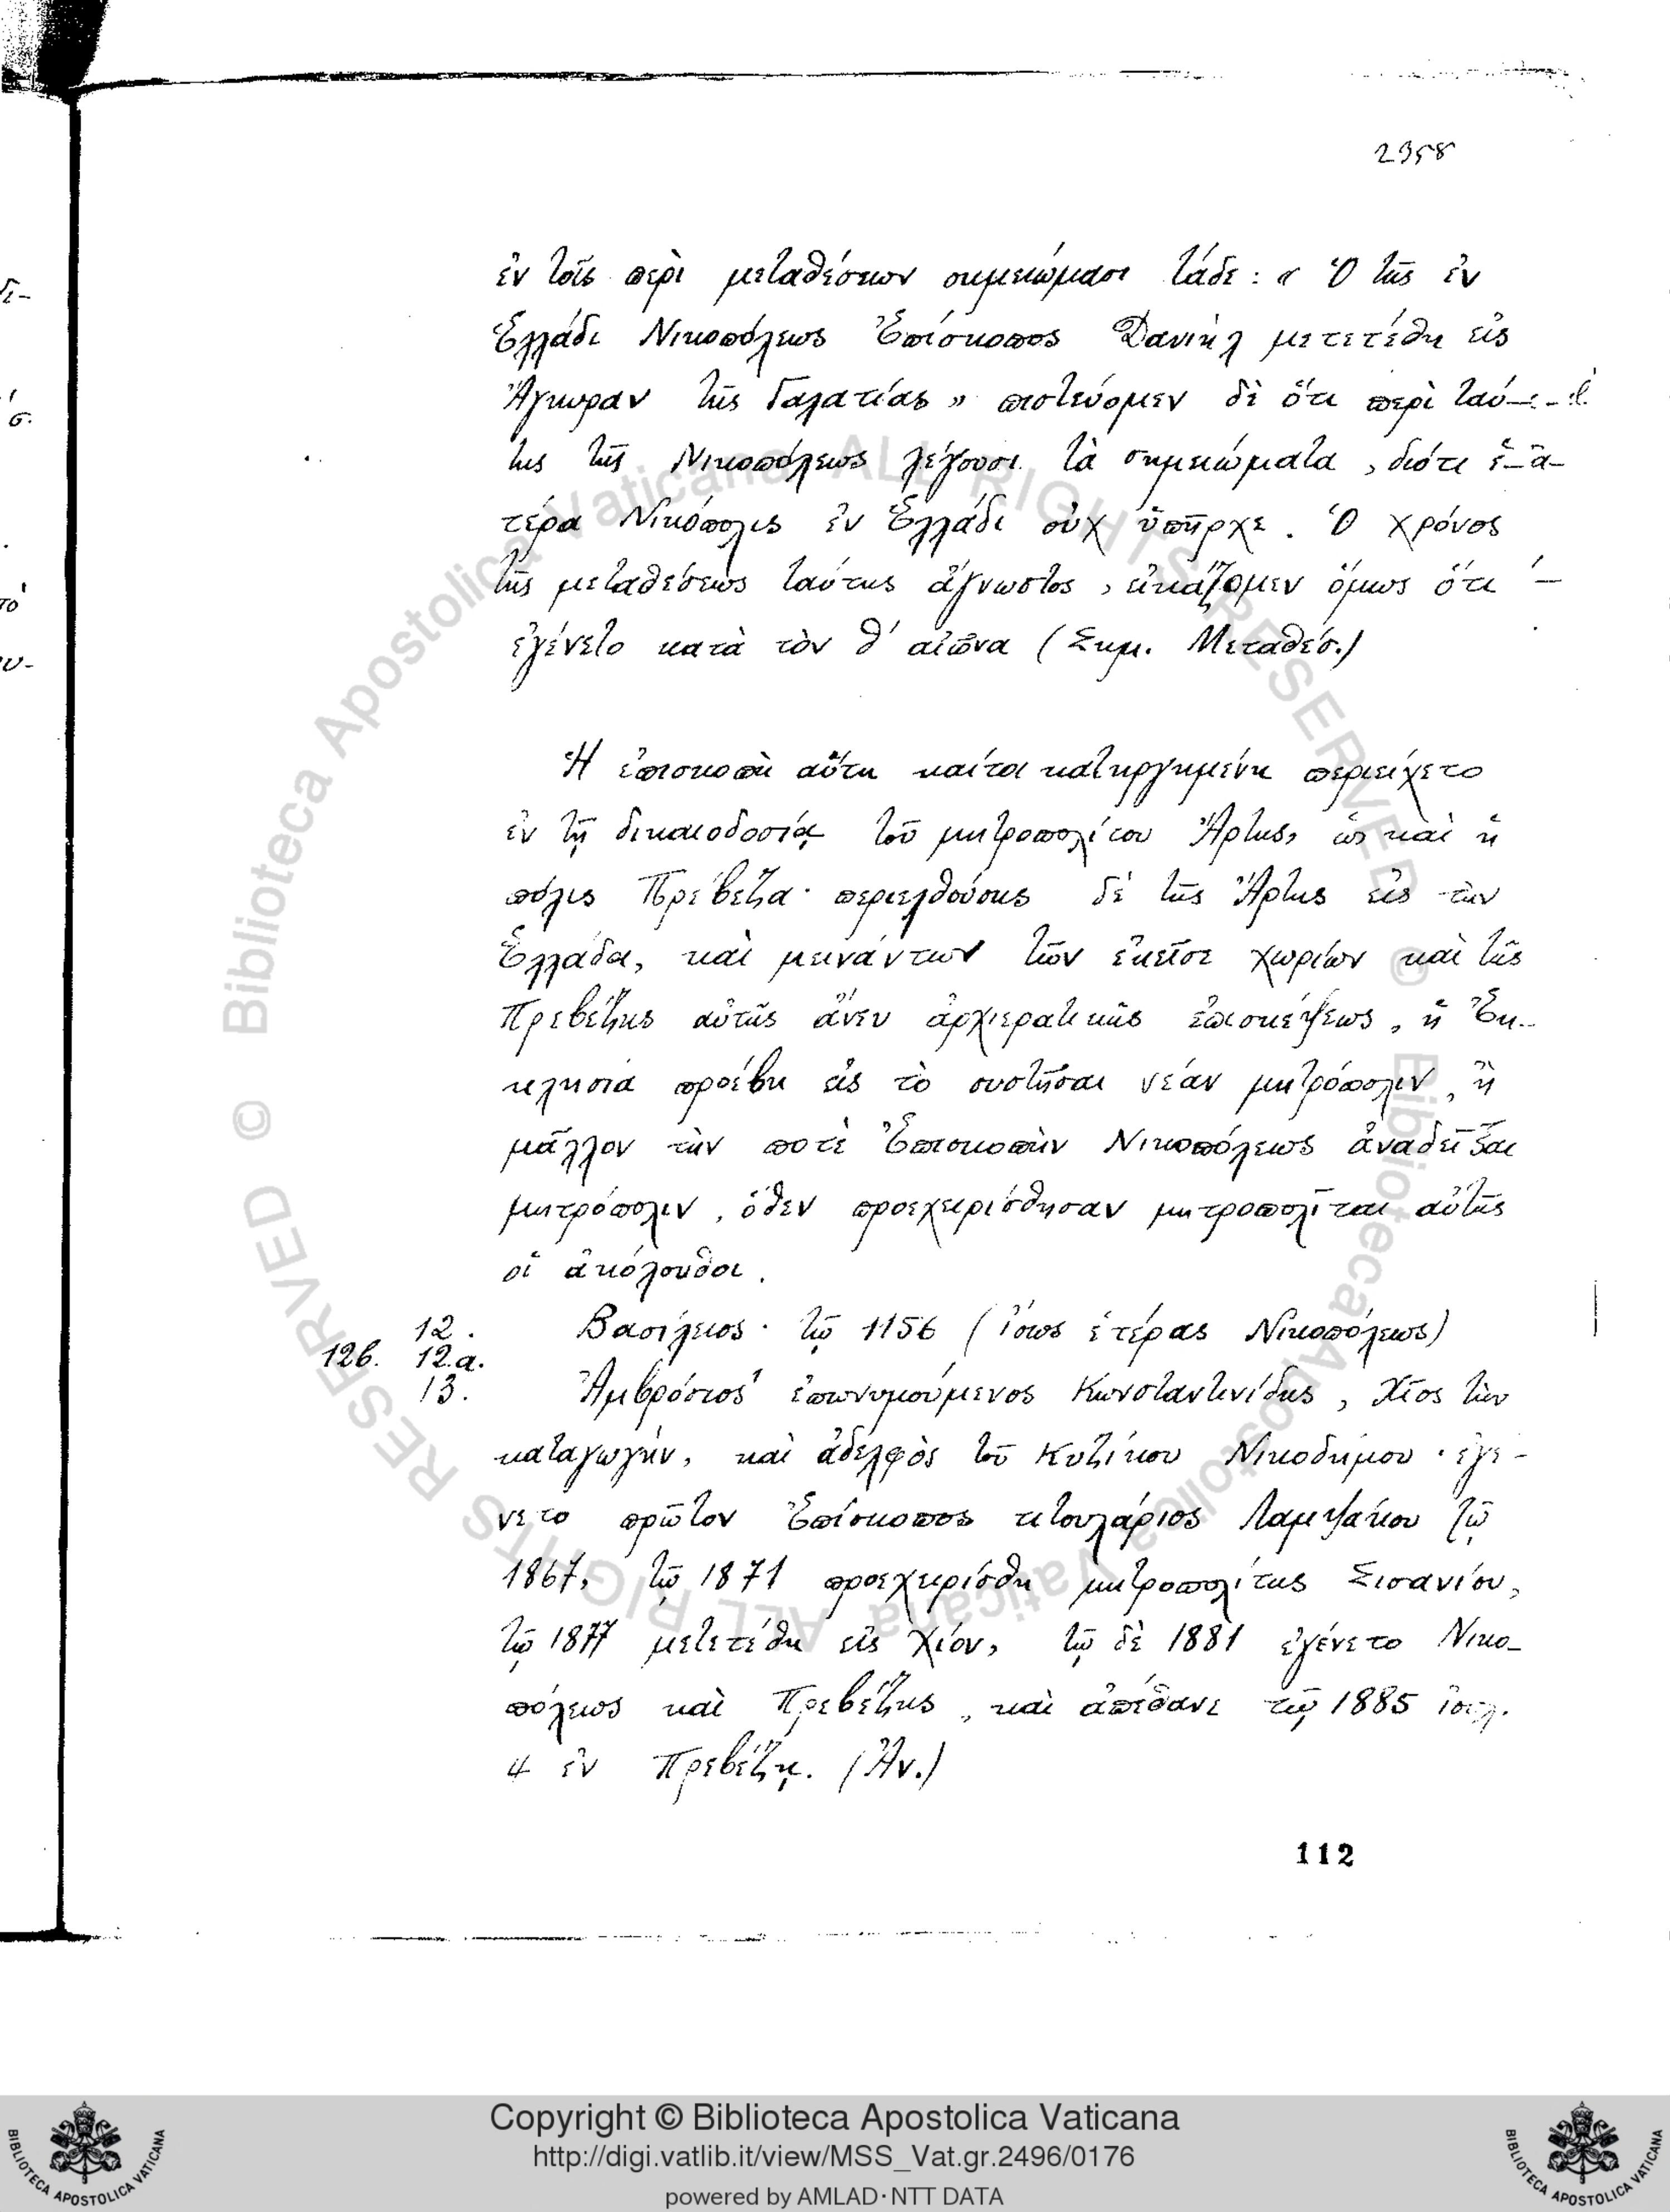 2358
ἐν τοῖς περὶ μεταθέσεων σημειώμασι τάδε : « Ὁ τῆς ἐν
Ἑλλάδι Νικοπόλεως Ἐπίσκοπος Δανιὴλ μετετέθη εἰς
Ἄγκυραν τῆς Γαλατίας » πιστεύομεν δὲ ὅτι περὶ ταύ-
της τῆς Νικοπόλεως λέγουσι τὰ σημειώματα, διότι
τέρα Νικόπολις ἐν Ἑλλάδι οὐχ ὑπῆρχε. Ὁ χρόνος
τῆς μεταθέσεως ταύτης ἄγνωστος, εἰκάζομεν ὅμως ὅτι
ἐγένετο κατὰ τὸν θ΄ αἰῶνα (Σημ. Μεταθέσ.)
Ἡ ἐπισκοπὴ αὕτη καίτοι κατηργημένη περιείχετο
ἐν τῇ δικαιοδοσίᾳ τοῦ μητροπολίτου Ἄρτης, ὡς καὶ ἡ
πόλις Πρέβεζα· περιελθούσης δὲ τῆς Ἄρτης εἰς τὴν
Ἑλλάδα, καὶ μεινάντων τῶν ἐκεῖσε χωρίων καὶ τῆς
Πρεβέζης αὐτῆς ἄνευ ἀρχιερατικῆς ἐπισκέψεως, ἡ Ἐκ-
κλησία προέβη εἰς τὸ συστῆσαι νέαν μητρόπολιν, ἢ
μᾶλλον τὴν ποτὲ Ἐπισκοπὴν Νικοπόλεως ἀναδεῖξαι
μητρόπολιν, ὅθεν προεχειρίσθησαν μητροπολῖται αὐτῆς
οἱ ἀκόλουθοι.
12. Βασίλειος· τῷ 1156 (ἴσως ἑτέρας Νικοπόλεως)
12β. 12.α.
13. Ἀμβρόσιος ἐπονομούμενος Κωνσταντινίδης, Χῖος τὴν
καταγωγήν, καὶ ἀδελφὸς τοῦ Κυζίκου Νικοδήμου· ἐγέ-
νετο πρῶτον Ἐπίσκοπος τιτουλάριος Λαμψάκου τῷ
1867, τῷ 1871 προεχειρίσθη μητροπολίτης Σισανίου,
τῷ 1877 μετετέθη εἰς Χίον, τῷ δὲ 1881 ἐγένετο Νικο-
πόλεως καὶ Πρεβέζης, καὶ ἀπέθανε τῷ 1885 ἰουλ.
4 ἐν Πρεβέζῃ. (Ἀν.)
112
© Biblioteca Apostolica Vaticana ALL RIGHTS RESERVED
© Biblioteca Apostolica Vaticana ALL RIGHTS RESERVED
Copyright © Biblioteca Apostolica Vaticana
http://digi.vatlib.it/view/MSS_Vat.gr.2496/0176
powered by AMLAD·NTT DATA
BIBLIOTECA APOSTOLICA VATICANA
BIBLIOTECA APOSTOLICA VATICANA